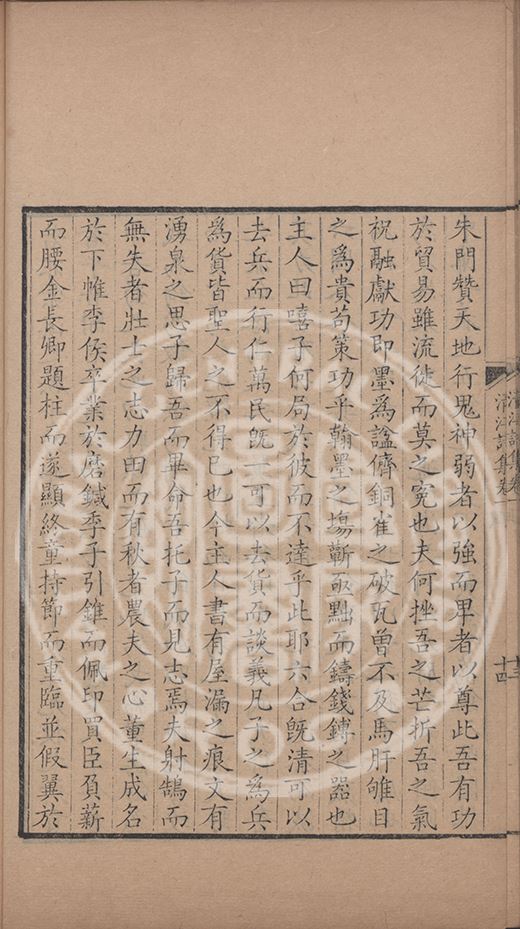 清江詩集卷一
十四
朱門贊天地行鬼神弱者以強而卑者以尊此吾有功
於貿易雖流徙而莫之寃也夫何挫吾之芒折吾之氣
祝融獻功即墨爲謚儕銅雀之破瓦曾不及馬肝雊目
之爲貴苟策功乎翰墨之塲蘄函黜而鑄錢鎛之器也
主人曰嘻子何局於彼而不達乎此耶六合旣清可以
去兵而行仁萬民旣一可以去貨而談義凡子之爲兵
爲貨皆聖人之不得已也今主人書有屋漏之痕文有
湧泉之思子歸吾而畢命吾托子而見志焉夫射鵠而
無失者壯士之志力田而有秋者農夫之心董生成名
於下帷李侯卒業於磨鍼季子引錐而佩印買臣負薪
而腰金長卿題柱而遂顯終童持節而重臨並假翼於